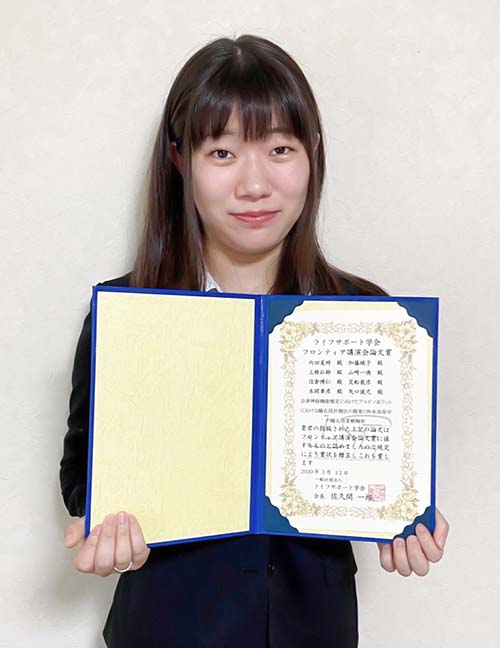 ライフサポート学会
フロンティア講演会論文賞
内田夏綺 殿 加藤綾子 殿
上條弘幹 殿 山﨑一徳 殿
住倉博仁 殿 荒船龍彦 殿
本間章彦 殿 矢口俊之 殿
における瞳孔径計測法の提案と拘束負荷中
の瞳孔径変動解析
貴君の投稿された上記の論文は
フロンティア講演会論文賞に値
するものと認めましたので規定
により賞状を贈呈しこれを賞し
ます
2020年3月12日
一般社団法人
ライフサポート学会
会長 佐久間 一郎